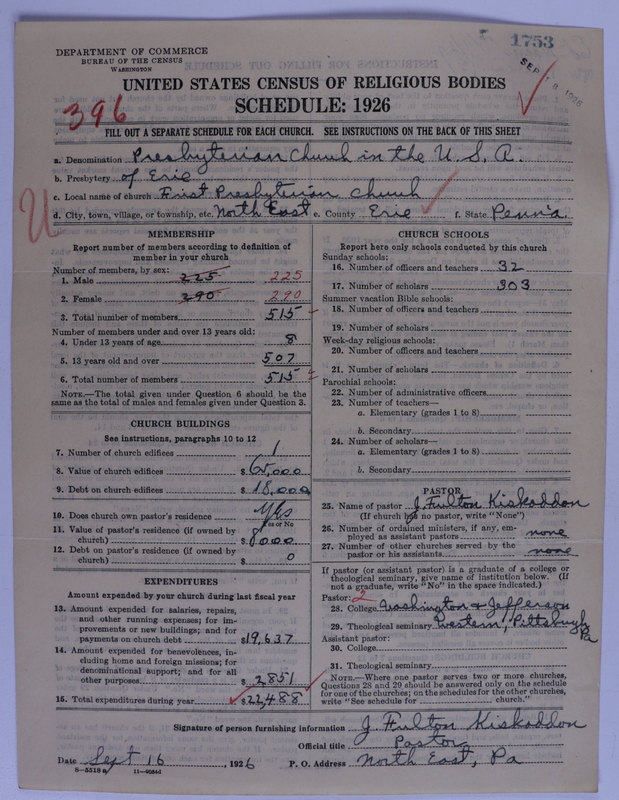 1753
SEP 18 1926
DEPARTMENT OF COMMERCE
BUREAU OF THE CENSUS
WASHINGTON
UNITED STATES CENSUS OF RELIGIOUS BODIES
SCHEDULE: 1926
396
FILL OUT A SEPARATE SCHEDULE FOR EACH CHURCH. SEE INSTRUCTIONS ON THE BACK OF THIS SHEET
a. Denomination Presbyterian Church in the U.S.A.
b. Presbytery of Erie
c. Local name of church First Presbyterian Church
d. City, town, village, or township, etc. North East e. County Erie f. State Penn'a
U
MEMBERSHIP
Report number of members according to definition of
member in your church
Number of members, by sex:
1. Male 225 225
2. Female 290 290
3. Total number of members 515
Number of members under and over 13 years old:
4. Under 13 years of age 8
5. 13 years old and over 507
6. Total number of members 515
NOTE.—The total given under Question 6 should be
same as the total of males and females given under Question 3.
CHURCH BUILDINGS
See instructions, paragraphs 10 to 12
7. Number of church edifices 1
8. Value of church edifices $65,000
9. Debt on church edifices $18,000
10. Does church own pastor's residence Yes
Yes or No
11. Value of pastor's residence (if owned by
church) $8000
12. Debt on pastor's residence (if owned by
church) $0
EXPENDITURES
Amount expended by your church during last fiscal year
13. Amount expended for salaries, repairs,
and other running expenses; for im-
provements or new buildings; and for
payments on church debt $19,637
14. Amount expended for benevolences, in-
cluding home and foreign missions; for
denominational support; and for all
other purposes $2,851
15. Total expenditures during year $22,488
CHURCH SCHOOLS
Report here only schools conducted by this church
Sunday schools:
16. Number of officers and teachers 32
17. Number of scholars 303
Summer vacation Bible schools:
18. Number of officers and teachers
19. Number of scholars
Week-day religious schools:
20. Number of officers and teachers
21. Number of scholars
Parochial schools:
22. Number of administrative officers
23. Number of teachers—
a. Elementary (grades 1 to 8)
b. Secondary
24. Number of scholars—
a. Elementary (grades 1 to 8)
b. Secondary
PASTOR
25. Name of pastor J. Fulton Kiskaddon
(If church has no pastor, write "None")
26. Number of ordained ministers, if any, em-
ployed as assistant pastors none
27. Number of other churches served by the
pastor or his assistants none
If pastor (or assistant pastor) is a graduate of a college or
theological seminary, give name of institution below. (If
not a graduate, write "No" in the space indicated.)
Pastor: 2
28. College Washington & Jefferson
29. Theological seminary Western, Pittsburgh, Pa
Assistant pastor:
30. College
31. Theological seminary
NOTE.—Where one pastor serves two or more churches,
Questions 28 and 29 should be answered only on the schedule
for one of the churches; on the schedules for the other churches,
write "See schedule for church."
Signature of person furnishing information J. Fulton Kiskaddon
Official title Pastor
Date Sept 16, 1926 P. O. Address North East, Pa
8—5518a 11—9034d